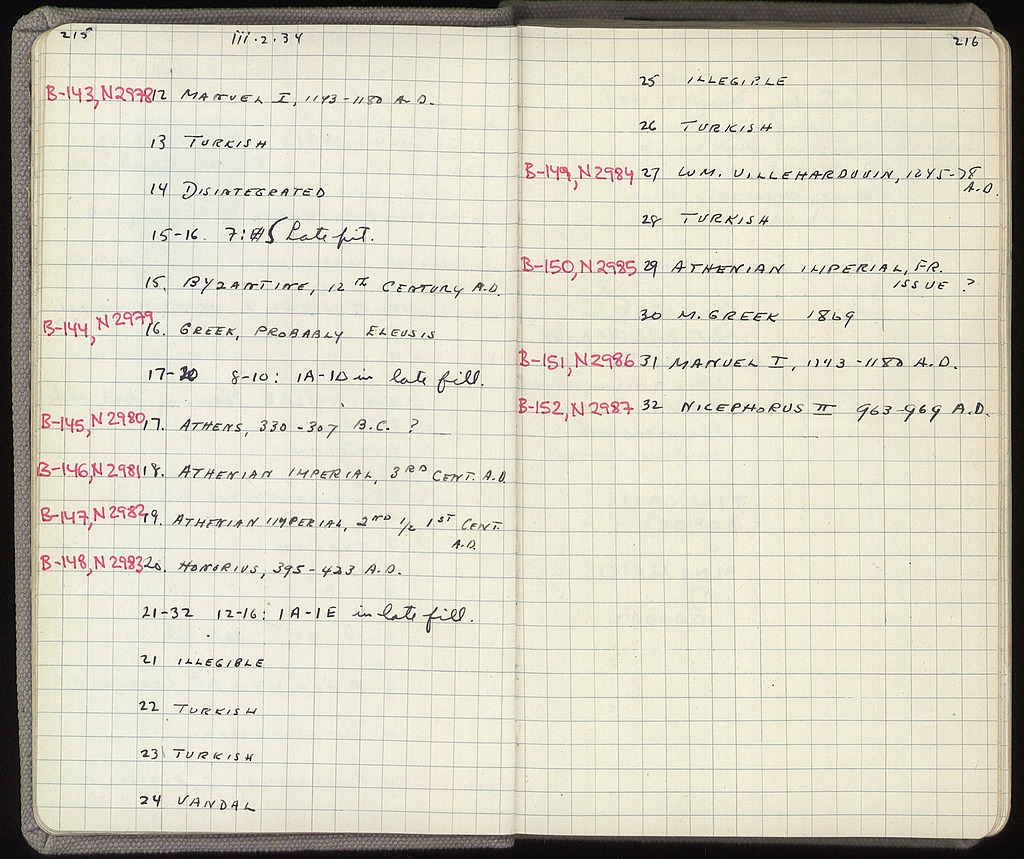 215
iii.2.34
B-143, N2978 12 MANUEL I, 1143-1180 A.D.
13 TURKISH
14 DISINTEGRATED
15-16. 7: 5 Late pit.
15. BYZANTINE, 12TH CENTURY A.D.
B-144, N2979 16. GREEK, PROBABLY ELEUSIS
17-20 8-10: 1A-1D in late fill.
B-145, N2980 17. ATHENS, 330-307 B.C. ?
B-146, N2981 18. ATHENIAN IMPERIAL, 3RD CENT. A.D.
B-147, N2982 19. ATHENIAN IMPERIAL, 2ND 1/2 1ST CENT.
A.D.
B-148, N2983 20. HONORIUS, 395-423 A.D.
21-32 12-16: 1A-1E in late fill.
21 ILLEGIBLE
22 TURKISH
23 TURKISH
24 VANDAL
216
25 ILLEGIBLE
26 TURKISH
B-149, N2984 27 WM. VILLEHARDOUIN, 1245-78
A.D.
28 TURKISH
B-150, N2985 29 ATHENIAN IMPERIAL, FR.
ISSUE ?
30 M. GREEK 1869
B-151, N2986 31 MANUEL I, 1143-1180 A.D.
B-152, N2987 32 NICEPHORUS II 963-969 A.D.